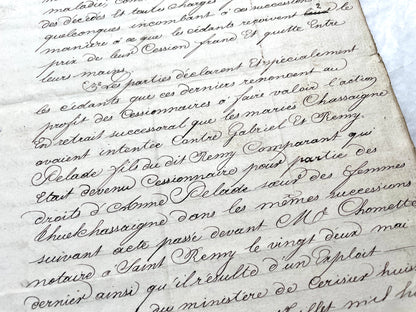 maladie, com
des décès et toutes charges
quelconques incombant à ces succession
manière à ce que les cédants reçoivent le
prix de leur Cession franc et quitte Entre
leurs mains.
3° Les parties déclarent Et spécialement
les cédants que ces derniers renoncent au
profit des Cessionnaires à faire valoir l'action
En retrait successoral que les mariés Chassaigne
avaient intentée Contre Gabriel Et Remy
Pelade fils du dit Remy Comparant qui
Etait devenu Cessionnaire pour partie des
droits d' Pelade sœur des femmes
Chassaigne dans les mêmes successions
suivant acte passé devant Me Chomette
notaire à Saint Remy le vingt deux mai
dernier ainsi qu'il résulte d'un Exploit
du ministère de Cerisier huis
illet mil hu